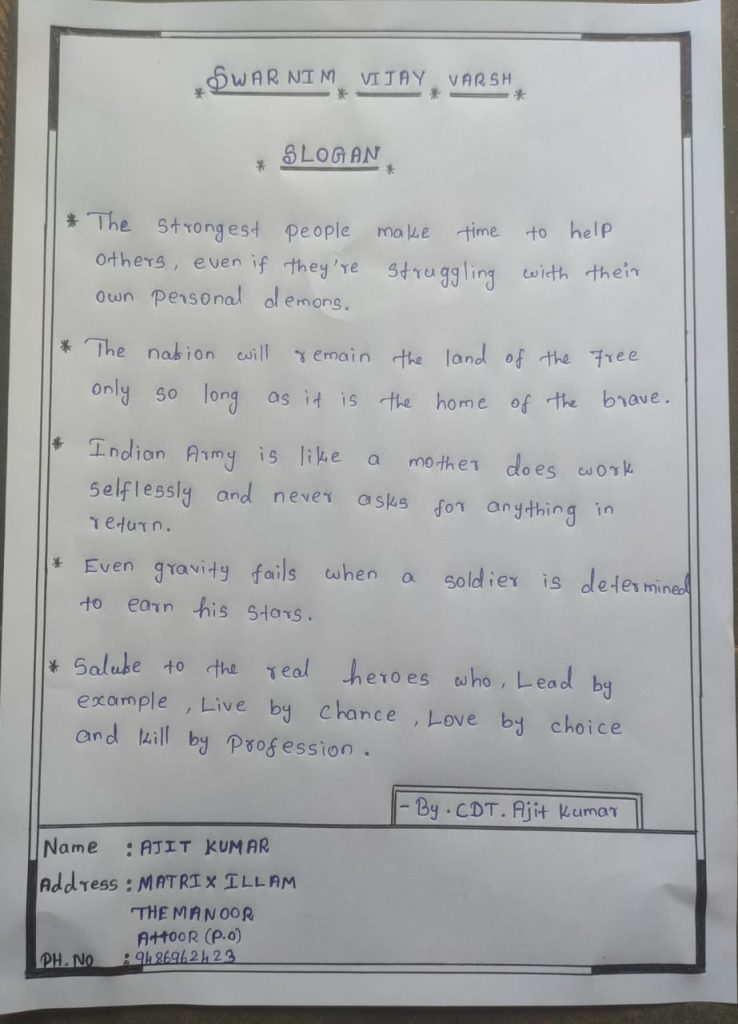 * SWARNIM * VIJAY * VARSH *
* SLOGAN *
* The strongest people make time to help
others, even if they're struggling with their
own personal demons.
* The nation will remain the land of the free
only so long as it is the home of the brave.
* Indian Army is like a mother does work
selflessly and never asks for anything in
return.
* Even gravity fails when a soldier is determined
to earn his stars.
* Salute to the real heroes who, Lead by
example, Live by chance, Love by choice
and kill by Profession.
- By. CDT. Ajit Kumar
Name : AJIT KUMAR
Address : MATRIX ILLAM
THEMANOOR
ATTOOR (P.O)
PH. NO : 9486962423